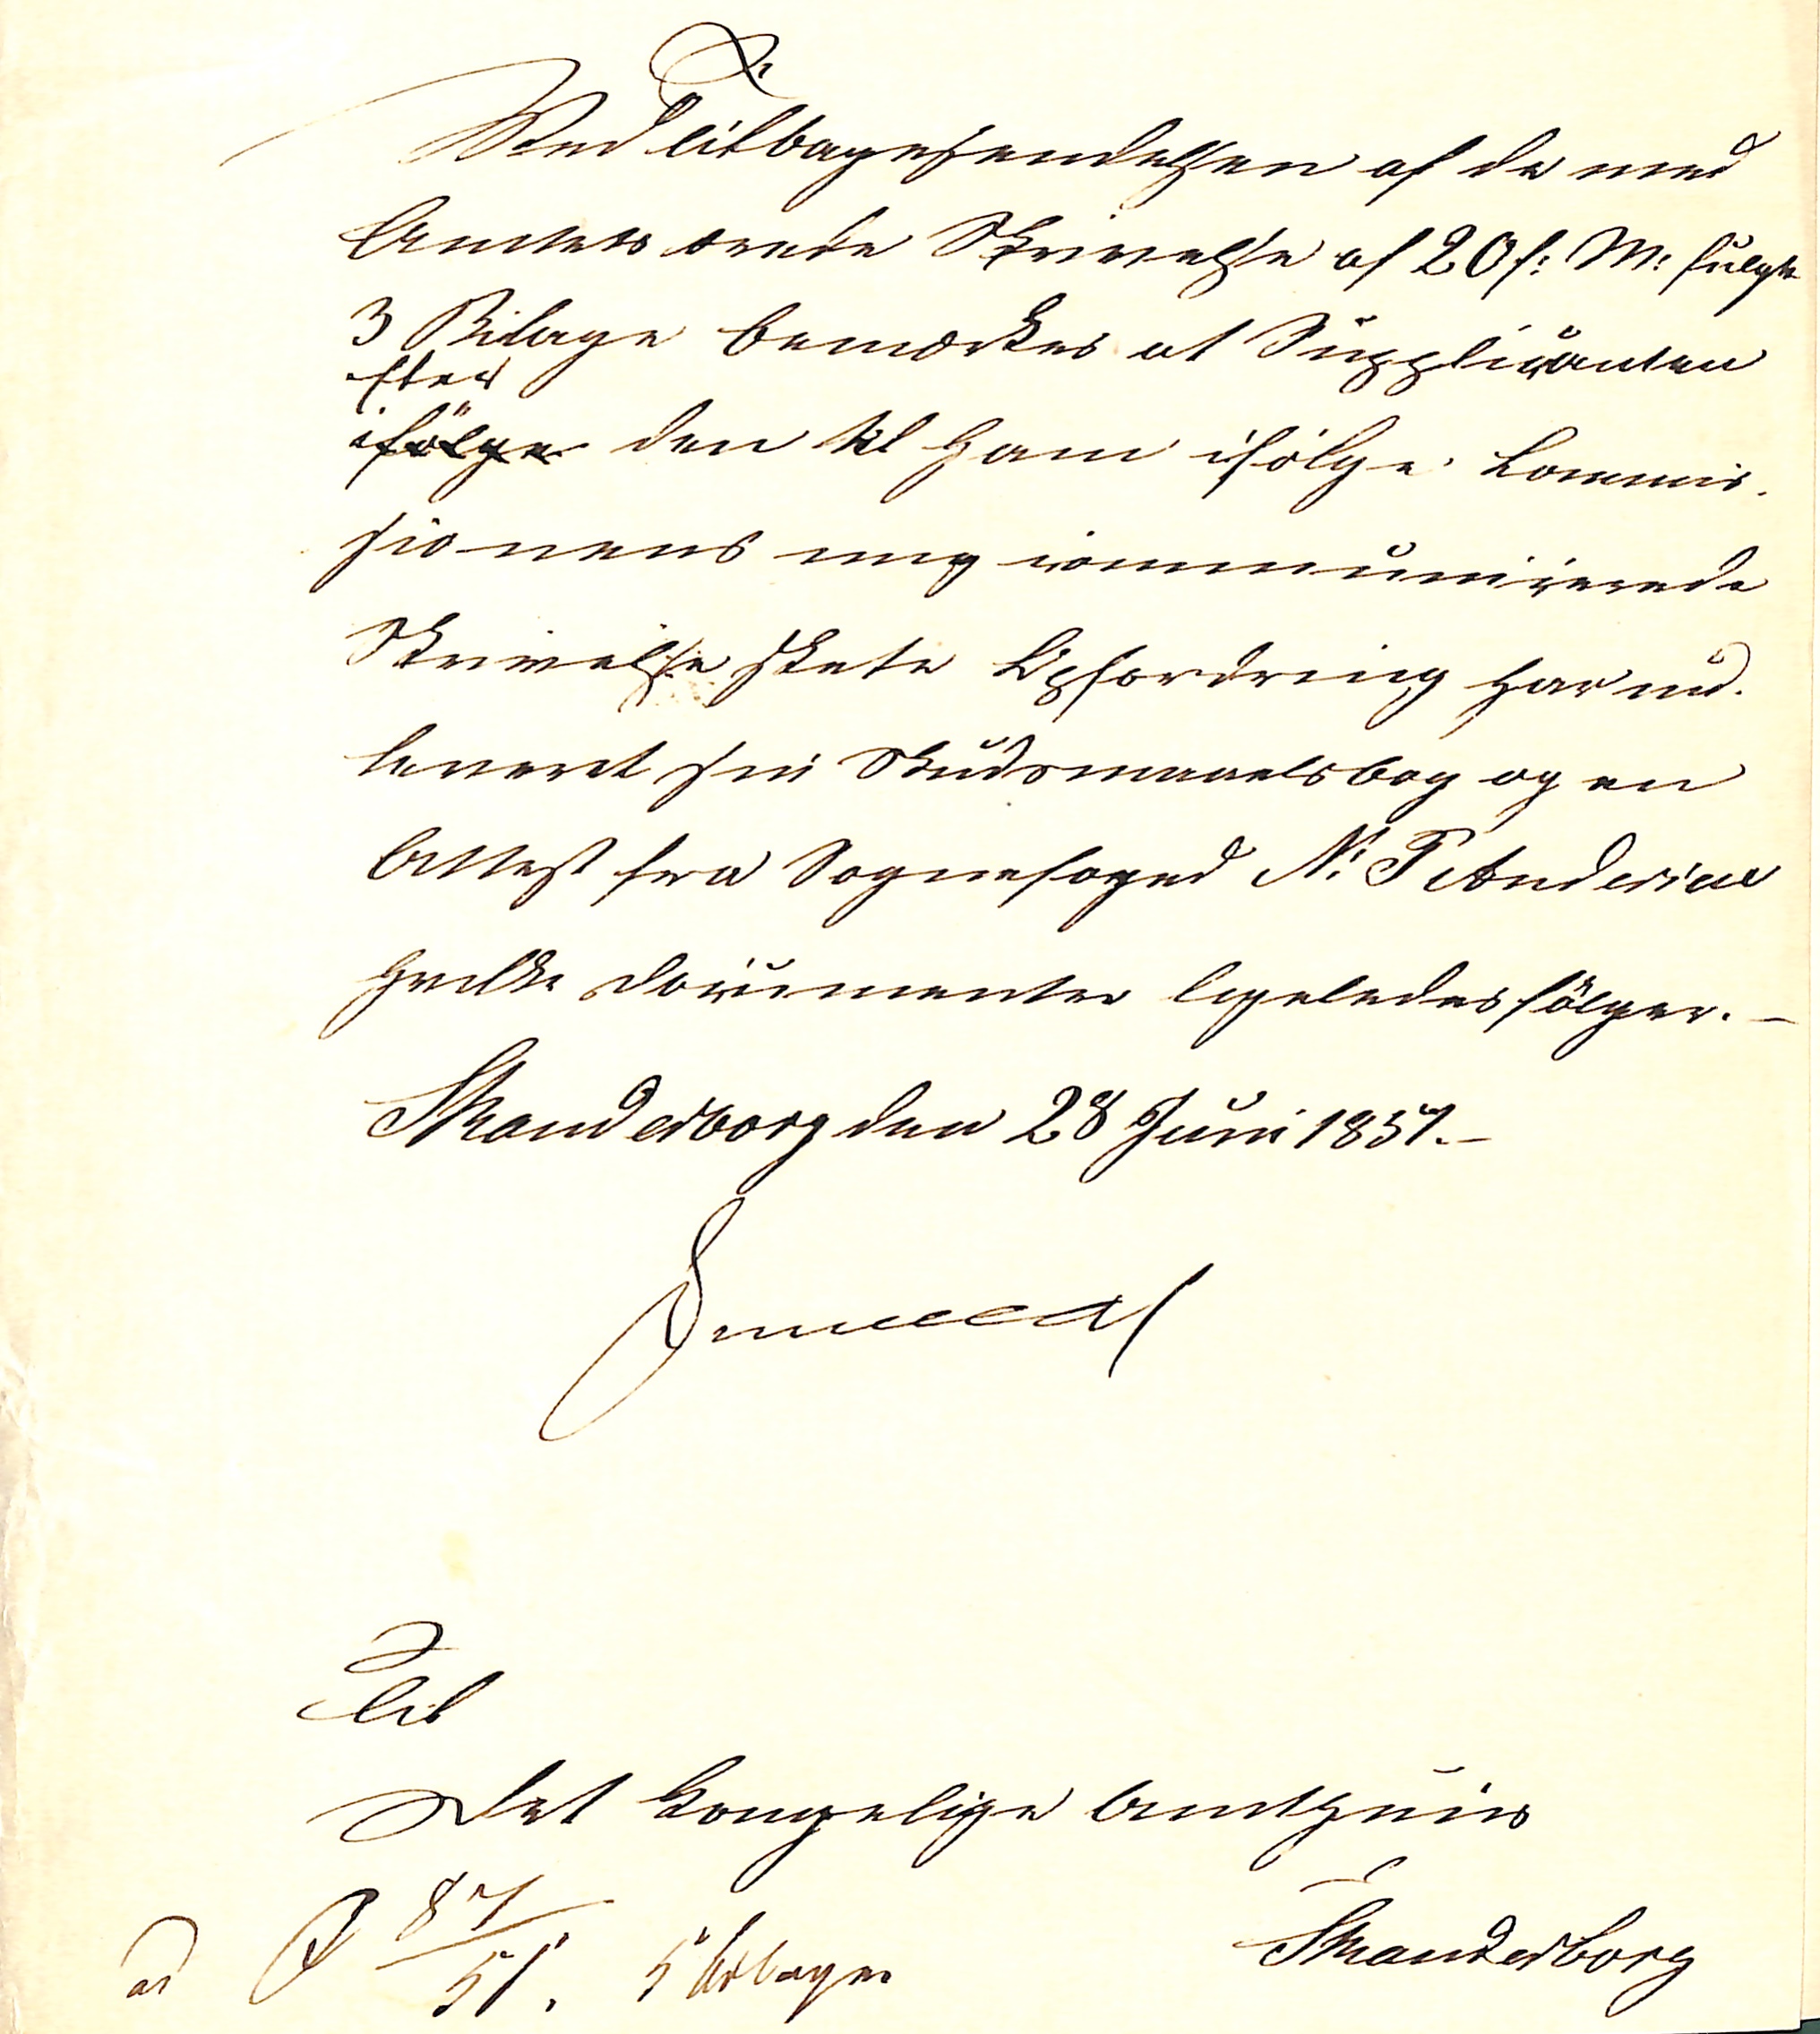 Ved Tilbagesendelsen af de med
Amtets ærede Skrivelse af 20 f: M: fulgte
3 Bilage bemærkes at Supplicanten
efter
ifölge den til ham ifölge Commis-
sionens mig communicerede
Skrivelse skete Opfordring har ud-
leveret sin Skudsmaalsbog og en
Attest fra Sognefoged N: P Andersen
hvilke Documenter ligeledes fölger. —
Skanderborg den 28 Juni 1851. —
Til
Det Kongelige Amthuus
Skanderborg
ad 87/51. 5 Bilage